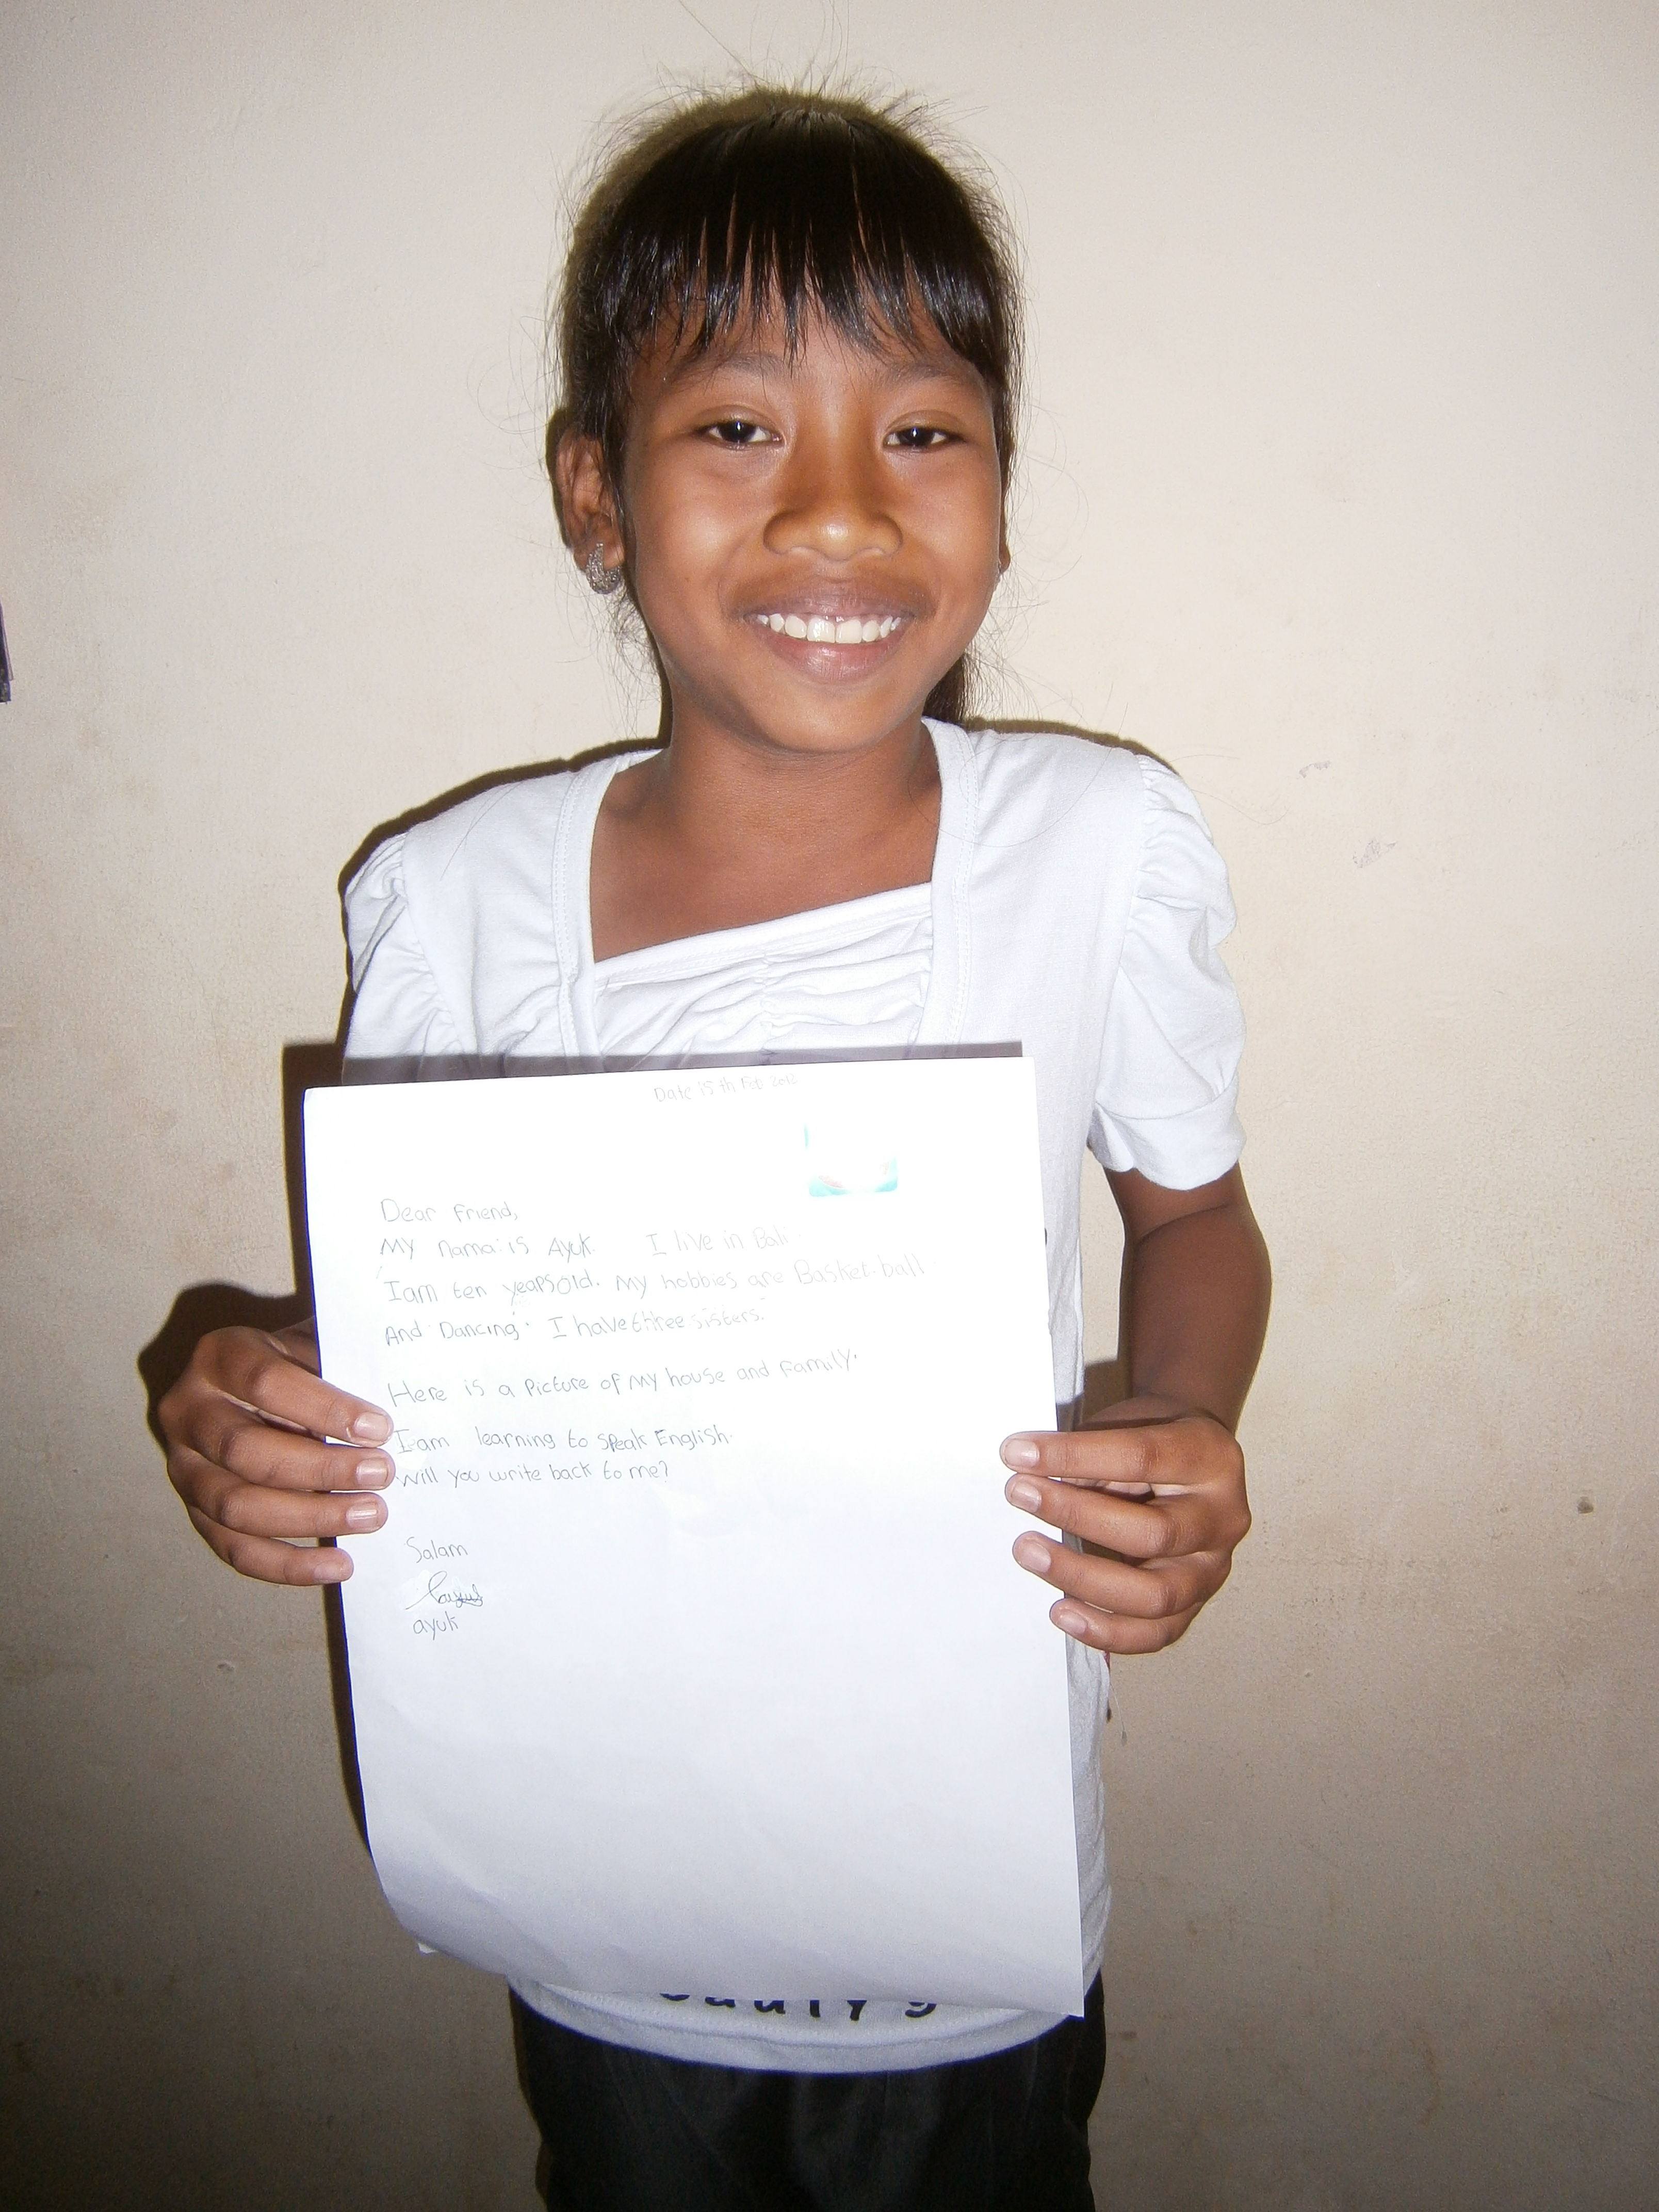 Date 15th Feb 2012
Dear Friend,
My nama is Ayuk. I live in Bali.
I am ten years old. My hobbies are Basket-ball
And Dancing. I have three sisters.
Here is a Picture of My house and family.
I am learning to speak English.
Will you write back to me?
Salam
ayuk